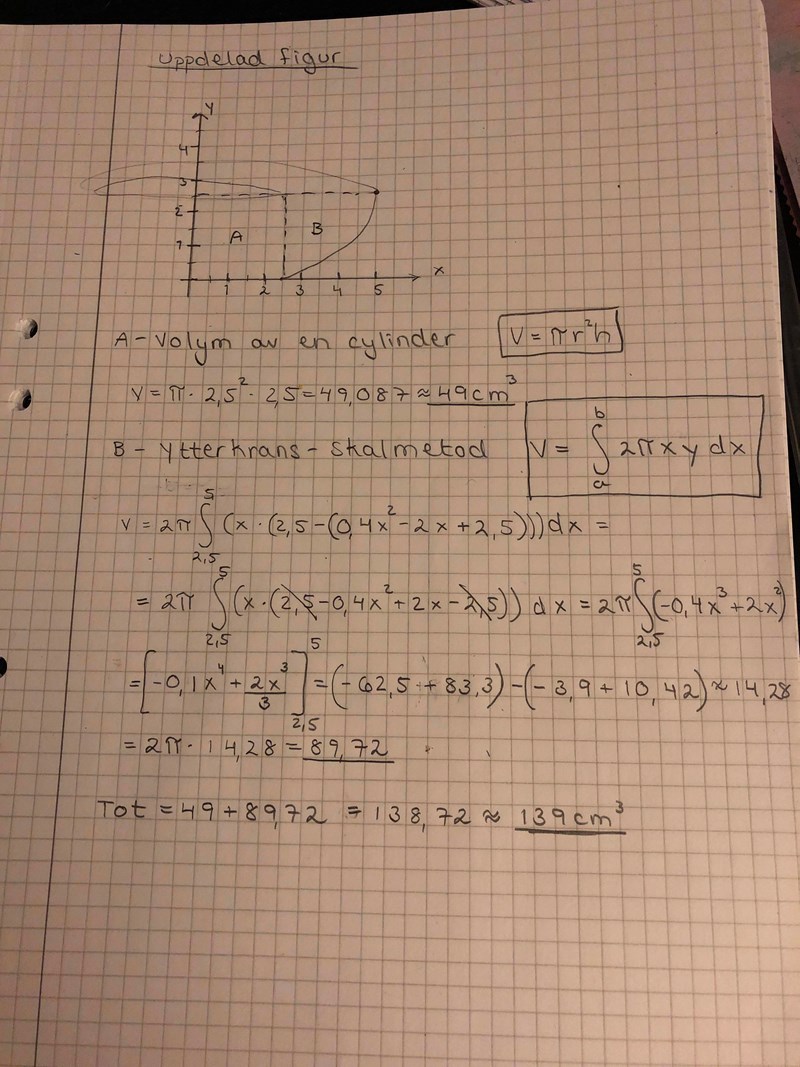 Uppdelad figur
y
4
3
2
1
A
B
x
1 2 3 4 5
A - Volym av en cylinder V = πr²h
V = π · 2,5² · 2,5 = 49,087 ≈ 49 cm³
B - Ytterkrans - Skalmetod V = ∫ₐᵇ 2πxy dx
V = 2π ∫_{2,5}^{5} (x · (2,5 - (0,4x² - 2x + 2,5)))dx =
= 2π ∫_{2,5}^{5} (x · (2,5 - 0,4x² + 2x - 2,5)) dx = 2π ∫_{2,5}^{5} (-0,4x³ + 2x²)
= [-0,1x⁴ + 2x³/3]_{2,5}^{5} = (-62,5 + 83,3) - (-3,9 + 10,42) ≈ 14,28
= 2π · 14,28 = 89,72
Tot = 49 + 89,72 = 138,72 ≈ 139 cm³